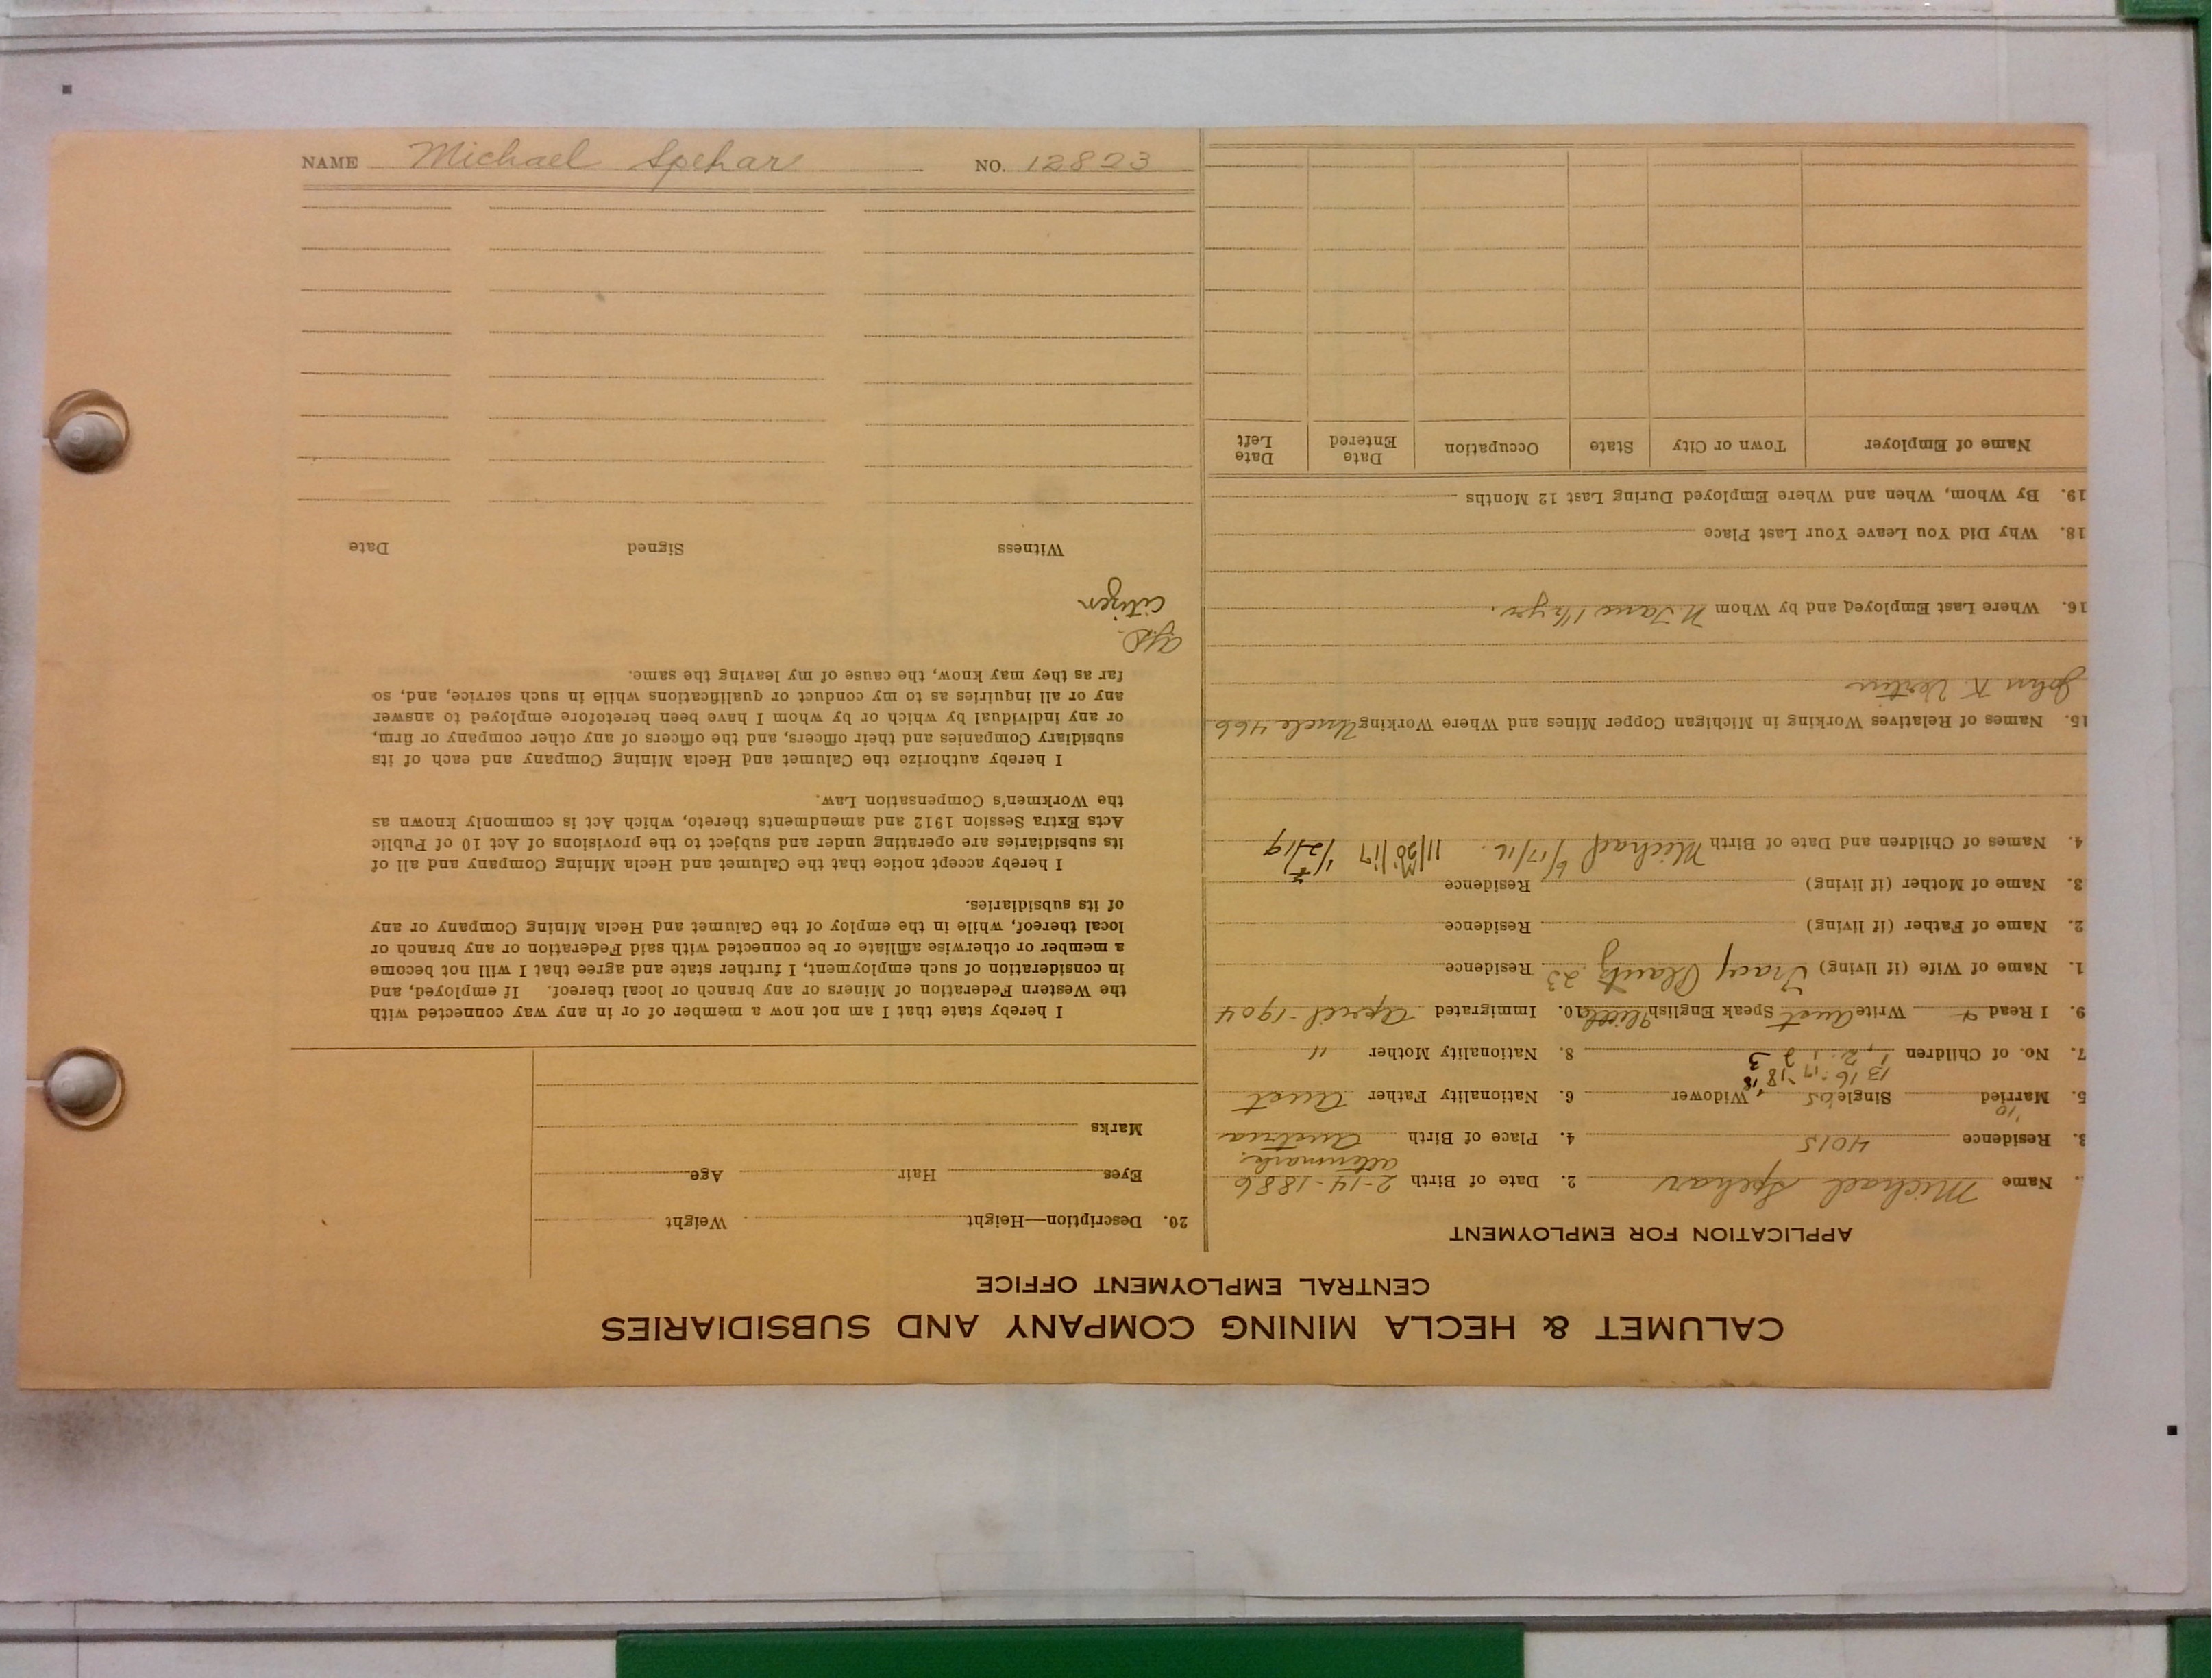 NAME Michael Spehar NO. 12823
CALUMET & HECLA MINING COMPANY AND SUBSIDIARIES
CENTRAL EMPLOYMENT OFFICE
APPLICATION FOR EMPLOYMENT
Name Michael Spehar 2. Date of Birth 2-14-1886
3. Residence 4015 4. Place of Birth Austria
5. Married Single Widower 6. Nationality Father Aust
7. No. of Children 8. Nationality Mother "
9. I Read Write Aust Speak English 10. Immigrated April-1904
1. Name of Wife (if living) Tracy Residence
2. Name of Father (if living) Residence
3. Name of Mother (if living) Residence
4. Names of Children and Date of Birth Michael 11/20/17
15. Names of Relatives Working in Michigan Copper Mines and Where Working Uncle 466
John K. Vertin
16. Where Last Employed and by Whom
18. Why Did You Leave Your Last Place
19. By Whom, When and Where Employed During Last 12 Months
Name of Employer Town or City State Occupation Date Entered Date Left
20. Description—Height Weight
Eyes Hair Age
Marks
I hereby state that I am not now a member of or in any way connected with
the Western Federation of Miners or any branch or local thereof. If employed, and
in consideration of such employment, I further state and agree that I will not become
a member or otherwise affiliate or be connected with said Federation or any branch or
local thereof, while in the employ of the Calumet and Hecla Mining Company or any
of its subsidiaries.
I hereby accept notice that the Calumet and Hecla Mining Company and all of
its subsidiaries are operating under and subject to the provisions of Act 10 of Public
Acts Extra Session 1912 and amendments thereto, which Act is commonly known as
the Workmen's Compensation Law.
I hereby authorize the Calumet and Hecla Mining Company and each of its
subsidiary Companies and their officers, and the officers of any other company or firm,
or any individual by which or by whom I have been heretofore employed to answer
any or all inquiries as to my conduct or qualifications while in such service, and, so
far as they may know, the cause of my leaving the same.
citizen
Witness Signed Date